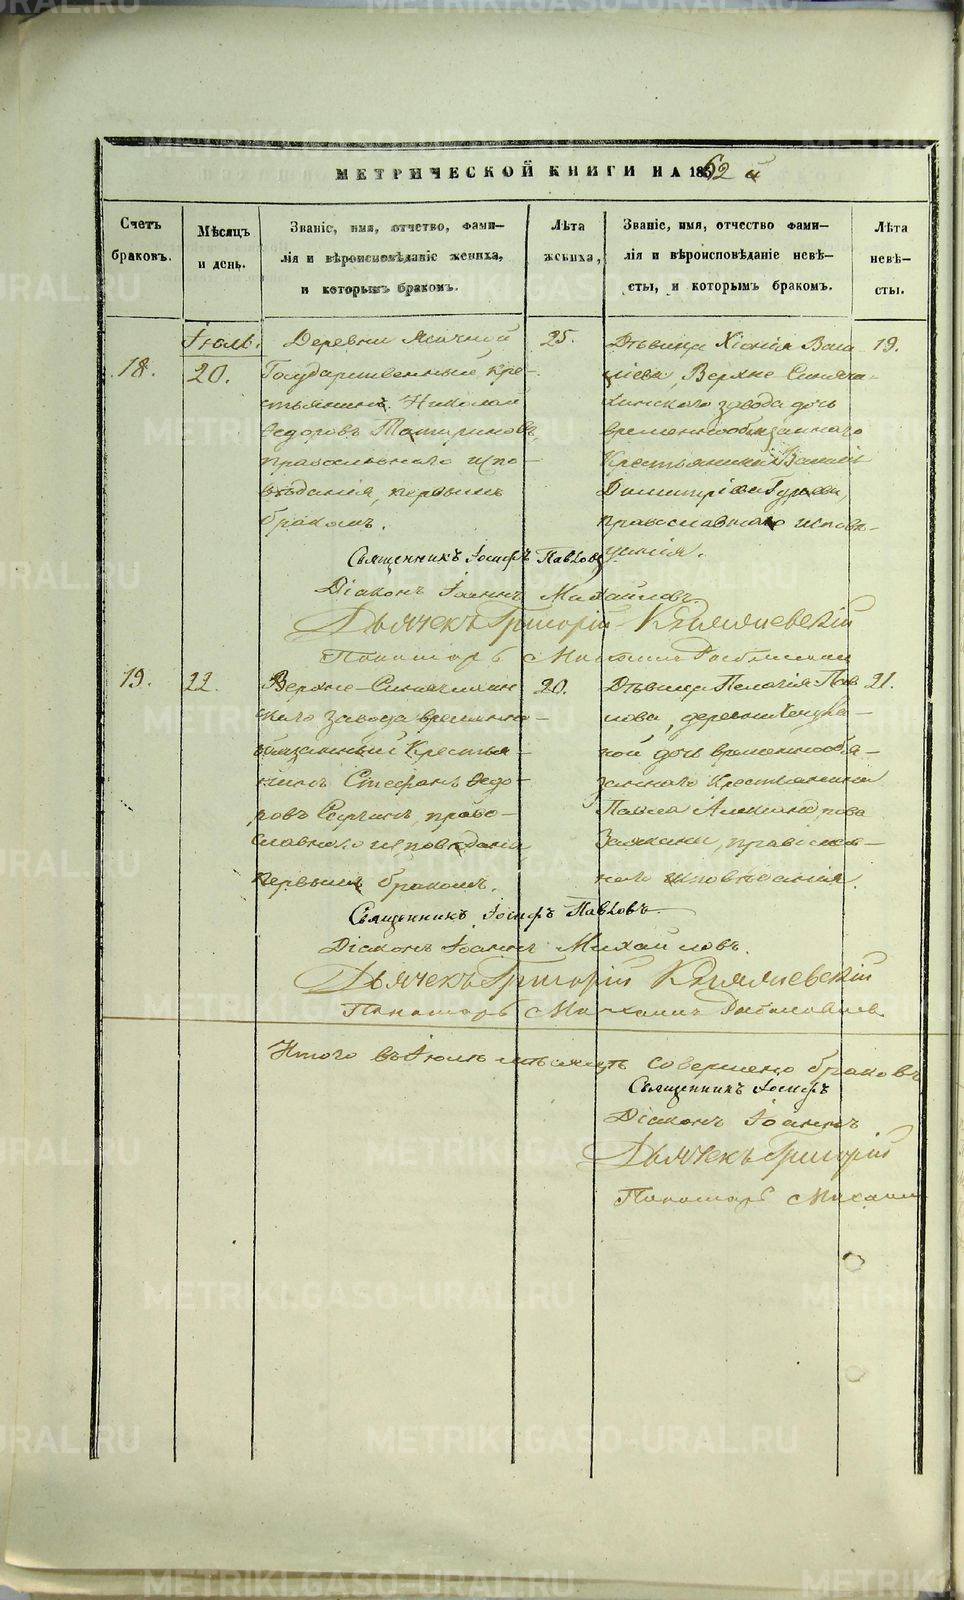 МЕТРИЧЕСКОЙ КНИГИ НА 1862 й
Счетъ браковъ.
Мѣсяцъ и день.
Званіе, имя, отчетво, фами-
лія и вѣроисповѣданіе жениха,
и которымъ бракомъ.
Лѣта жениха,
Званіе, имя, отчество фами-
лія и вѣроисповѣданіе невѣ-
сты, и которымъ бракомъ.
Лѣта невѣ-
сты.
18.
Іюль.
20.
Деревни
Государственный кре-
стьянинъ Николай
Ѳедоровъ Татариновъ,
православнаго испо-
вѣданія, первымъ
бракомъ.
25.
Дѣвица Хіонія Васи
ліева, Верхне Синячи-
хинскаго завода дочь
временнообязаннаго
Крестьянина Василія
Димитріева
православнаго исповѣ-
данія.
19.
Священникъ Іосифъ Павловъ
Діаконъ Іоаннъ Михайловъ.
Дьячекъ Григорій
Пономарь
19.
22.
Верхне-Синячихин
скаго завода временно-
обязанный Крестья-
нинъ Стефанъ Ѳедо-
ровъ православо-
славнаго исповѣданія
первымъ бракомъ.
20.
Дѣвица Пелагія Пав
лова, деревни
дочь временнообя-
заннаго Крестьянина
Павла Александрова
православ-
наго исповѣданія.
21.
Священникъ Іосифъ Павловъ
Діаконъ Іоаннъ Михайловъ.
Дьячекъ Григорій
Пономарь Михаилъ
Итого въ Іюлѣ мѣсяцѣ совершено браковъ
Священникъ Іосифъ
Діаконъ Іоаннъ
Дьячекъ Григорій
Пономарь Михаил
METRIKI.GASO-URAL.RU